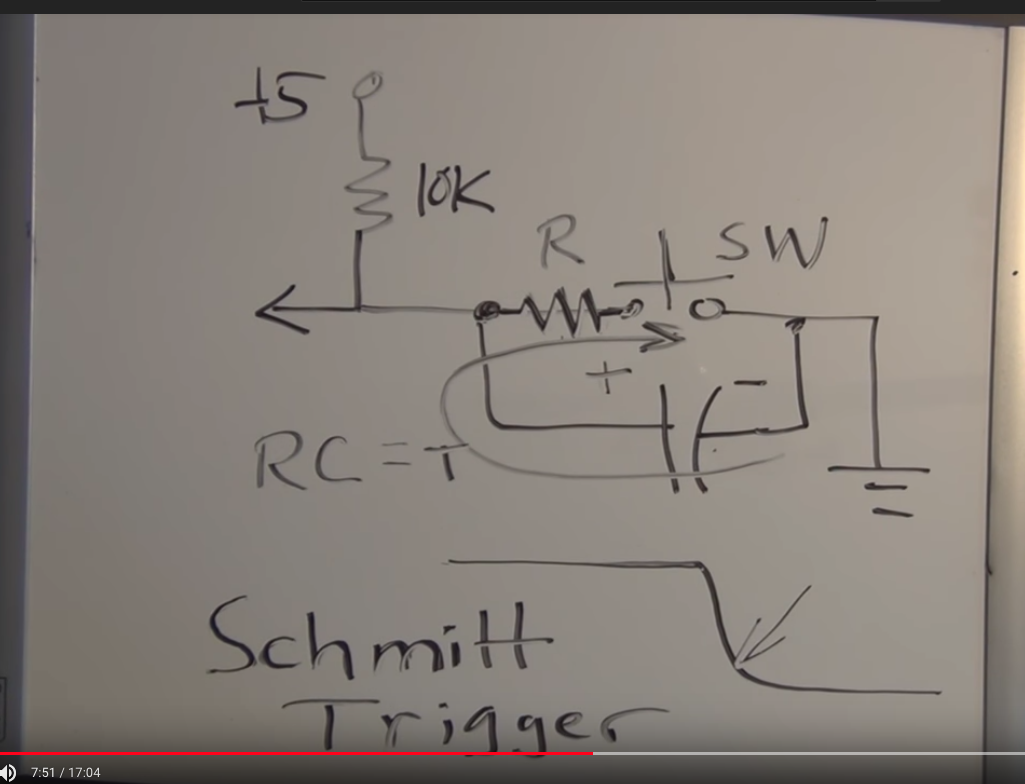 +5
10K
R
SW
+
-
RC = T
Schmitt
Trigger
7:51 / 17:04